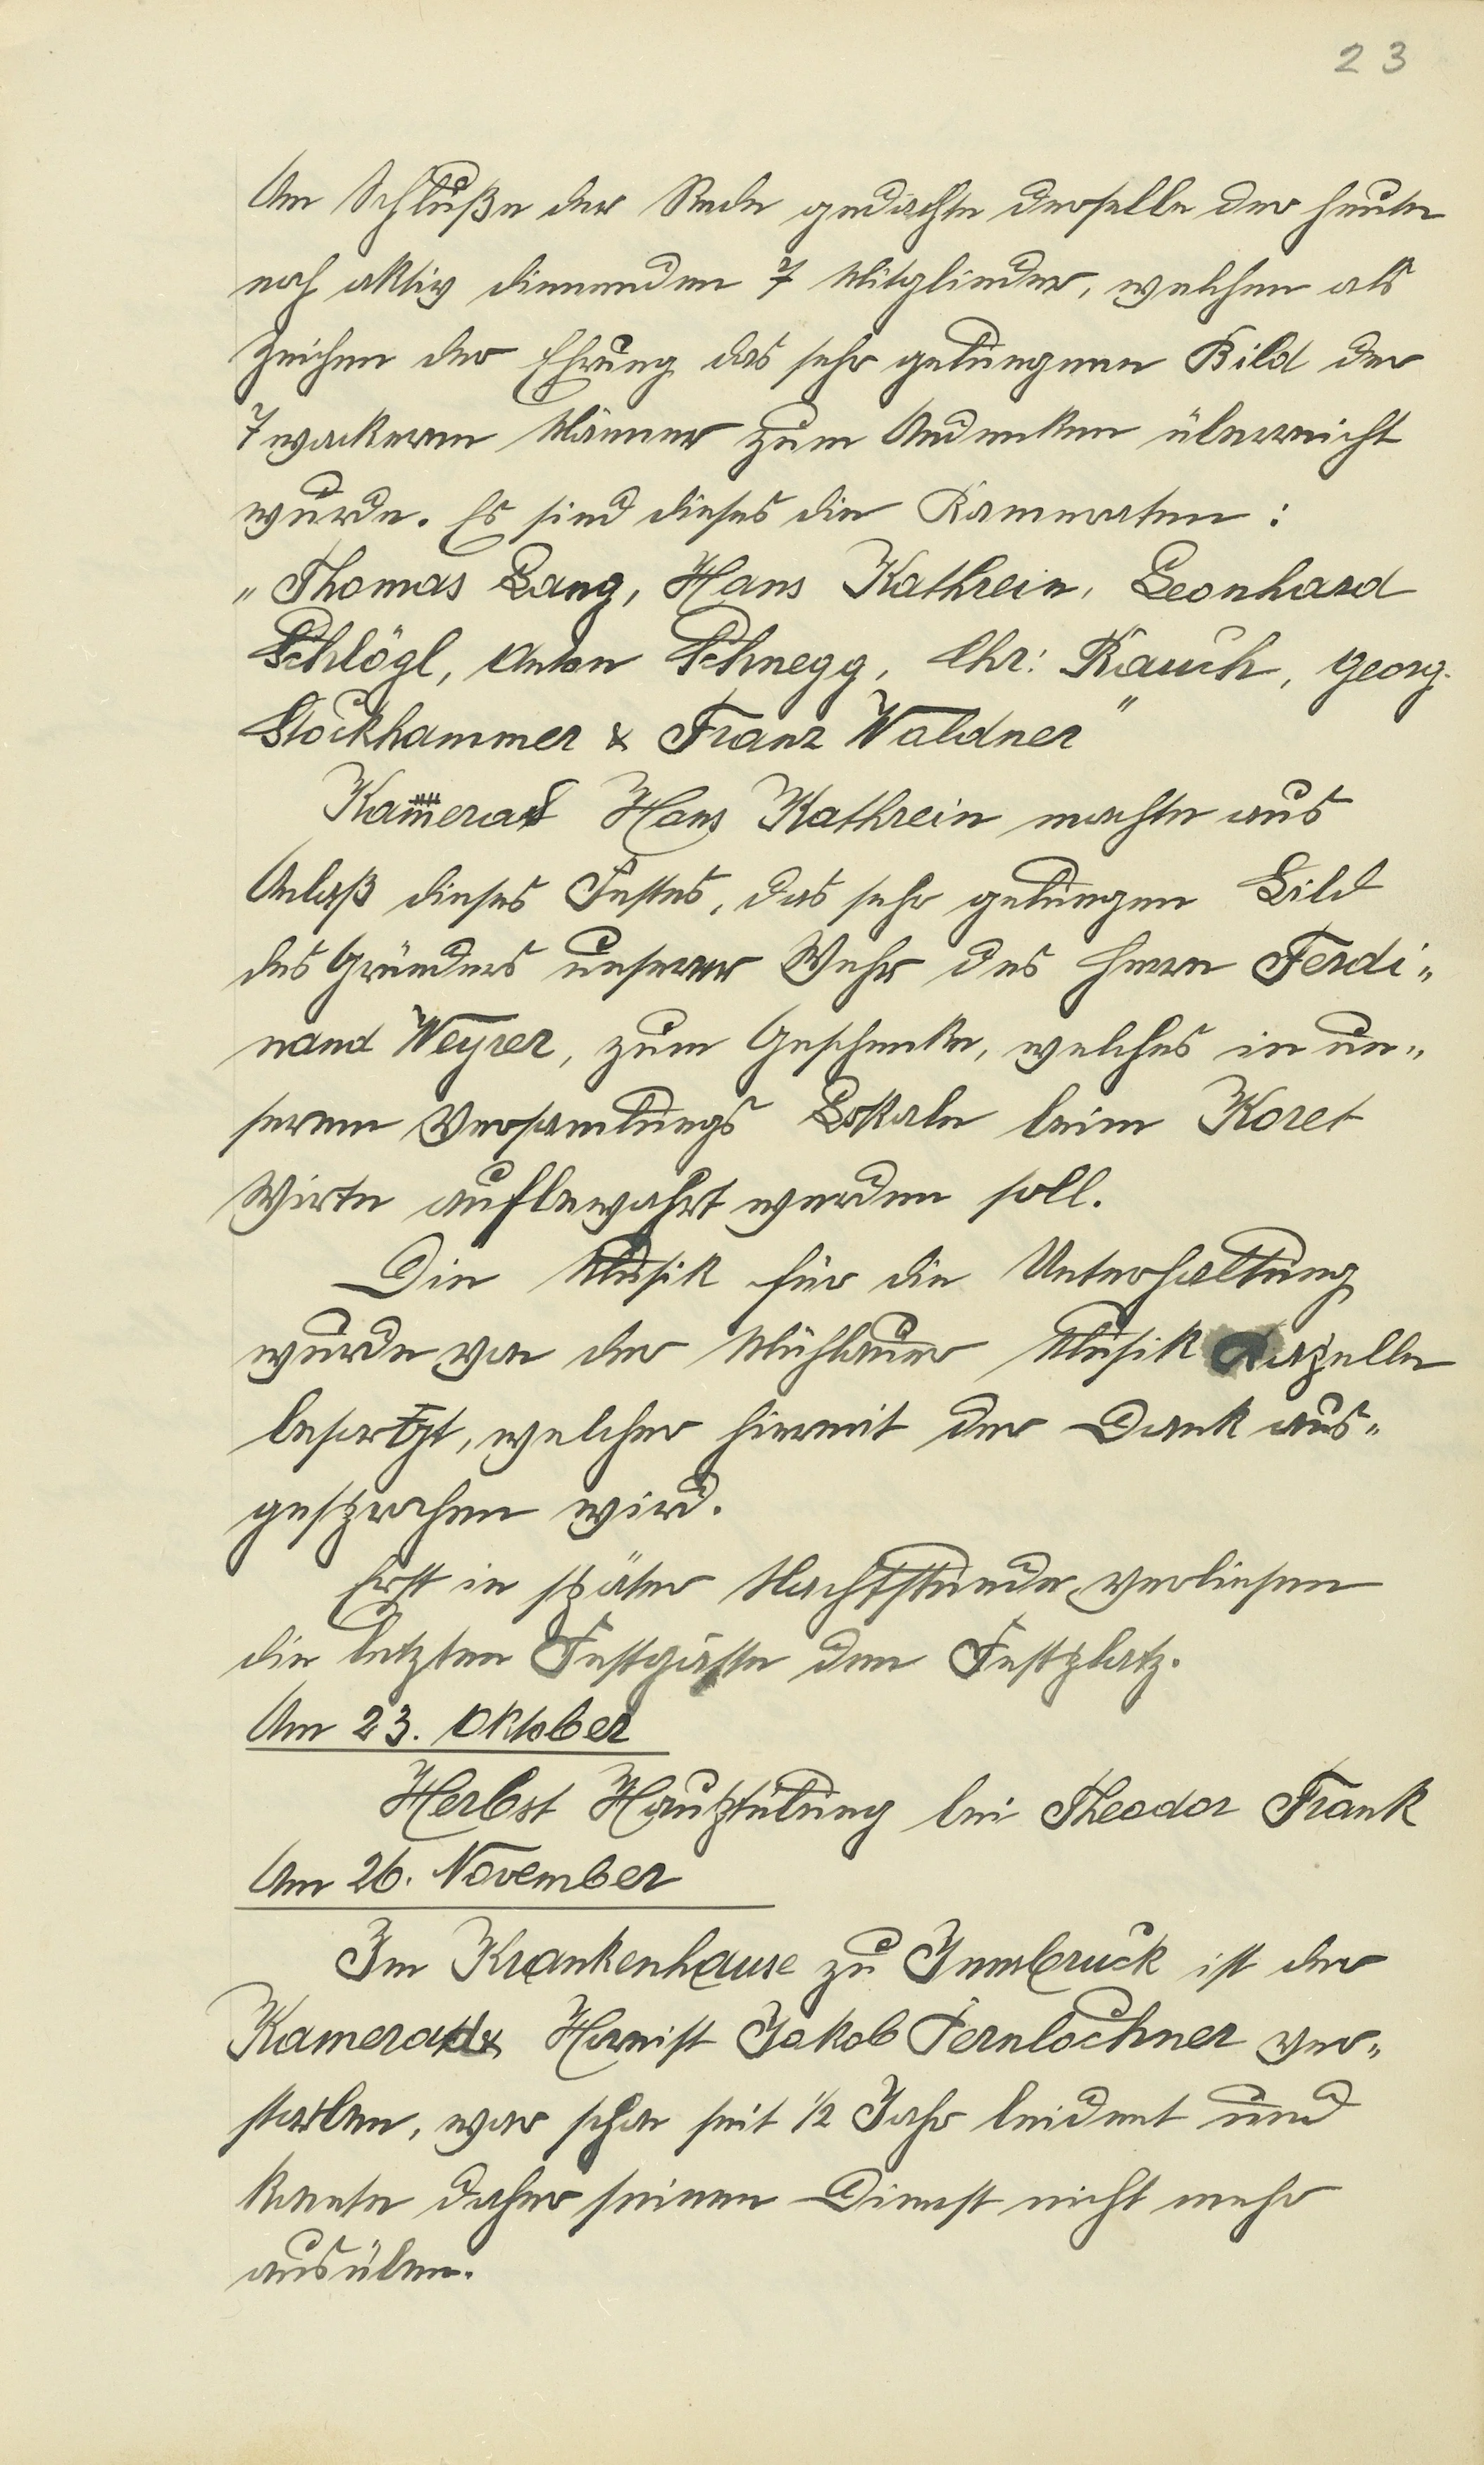 23
Am Schluße der Rede gedachte derselbe der heute
noch aktiv dienenden 7 Mitglieder, welchen als
Zeichen der Ehrung das sehr gelungene Bild der
7 wackeren Männer zum Andenken überreicht
wurde. Es sind dieses die Kameraten :
„Thomas Lang, Hans Kathrein, Leonhard
Schlögl, Anton Schnegg, Chr: Rauch, Georg
Stockhammer & Franz Waldner"
Kamerad Hans Kathrein machte aus
Anlaß dieses Festes, das sehr gelungen Bild
des Gründers unserer Wehr des Herrn Ferdi„
nand Weyrer, zum Geschenke, welches in un„
serem Versamlungs Lokale beim Koret
Wirte aufbewahrt werden soll.
Die Musik für die Unterhaltung
wurde von der Mühlauer Musik Kapelle
besorgt, welcher hiermit der Dank aus„
gesprochen wird.
Erst in später Nachtstunde verliesen
die letzten Festgäste den Festplatz.
Am 23. Oktober
Herbst Hauptübung bei Theodor Frank
Am 26. November
Im Krankenhause zu Innsbruck ist der
Kamerad Hornist Jakob Fernlochner ver„
storben, war schon seit ½ Jahr leident und
konte daher seinen Dienst nicht mehr
ausüben.